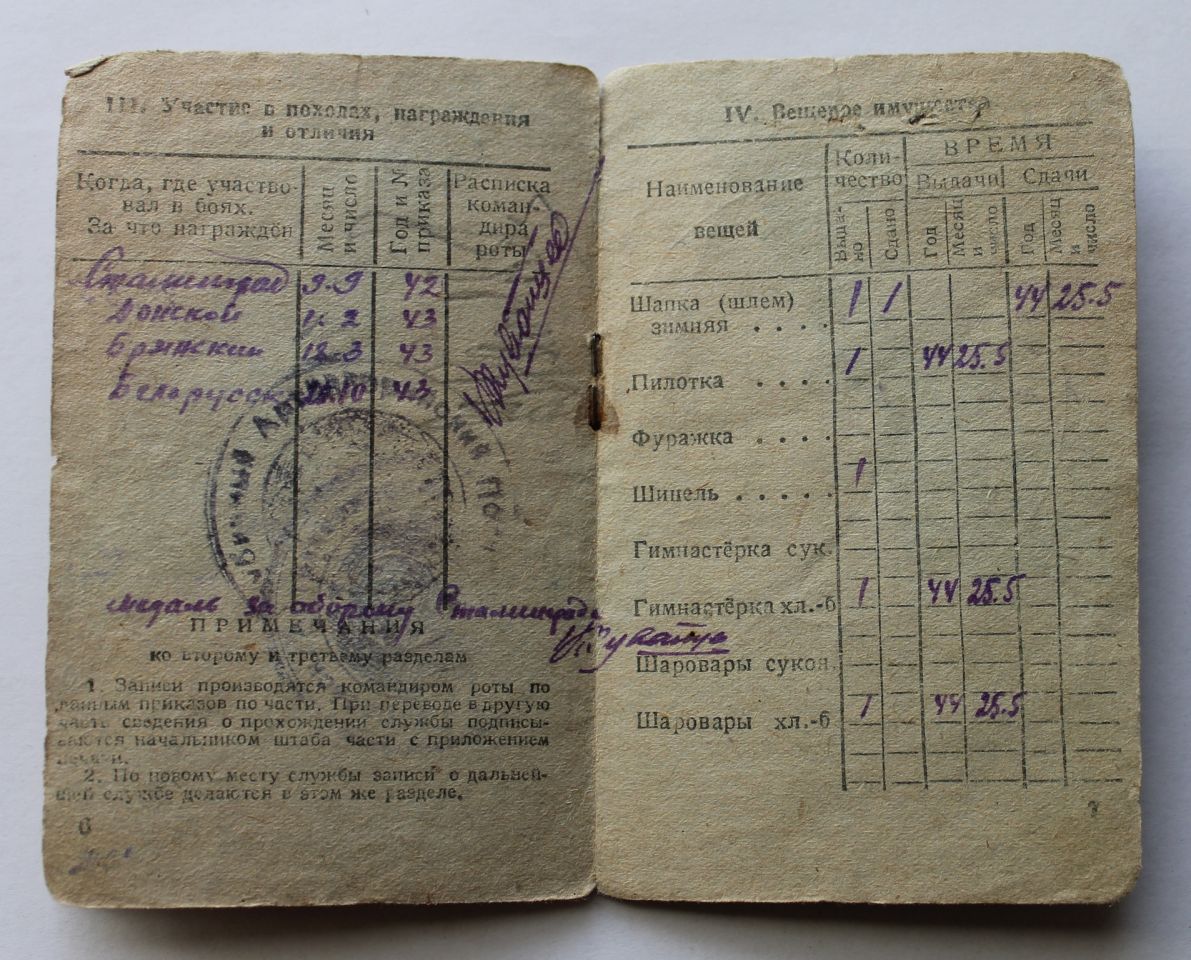 III. Участие в походах, награждения
и отличия
Когда, где участво-
вал в боях.
За что награждён
Месяц
и число
Год и №
приказа
Расписка
коман-
дира
роты
Сталинград 9.9 42
Донской 2 43
Брянский 12.3 43
Белорусск 10 43
медаль за оборону Сталинграда
ПРИМЕЧАНИЯ
ко второму и третьему разделам
1. Записи производятся командиром роты по
данным приказов по части. При переводе в другую
часть сведения о прохождении службы подписы-
ваются начальником штаба части с приложением
печати.
2. По новому месту службы записи о дальней-
шей службе делаются в этом же разделе.
6
IV. Вещевое имущество
Наименование
вещей
Коли-
чество
ВРЕМЯ
Выдачи Сдачи
Выда-
но
Сдано
Год
Месяц
и
число
Год
Месяц
и
число
Шапка (шлем) 1 1 44 25.5
зимняя . . . .
Пилотка . . . . 1 44 25.5
Фуражка . . . .
Шинель . . . . 1
Гимнастёрка сук.
Гимнастёрка хл.-б 1 44 25.5
Шаровары сукон.
Шаровары хл.-б 1 44 25.5